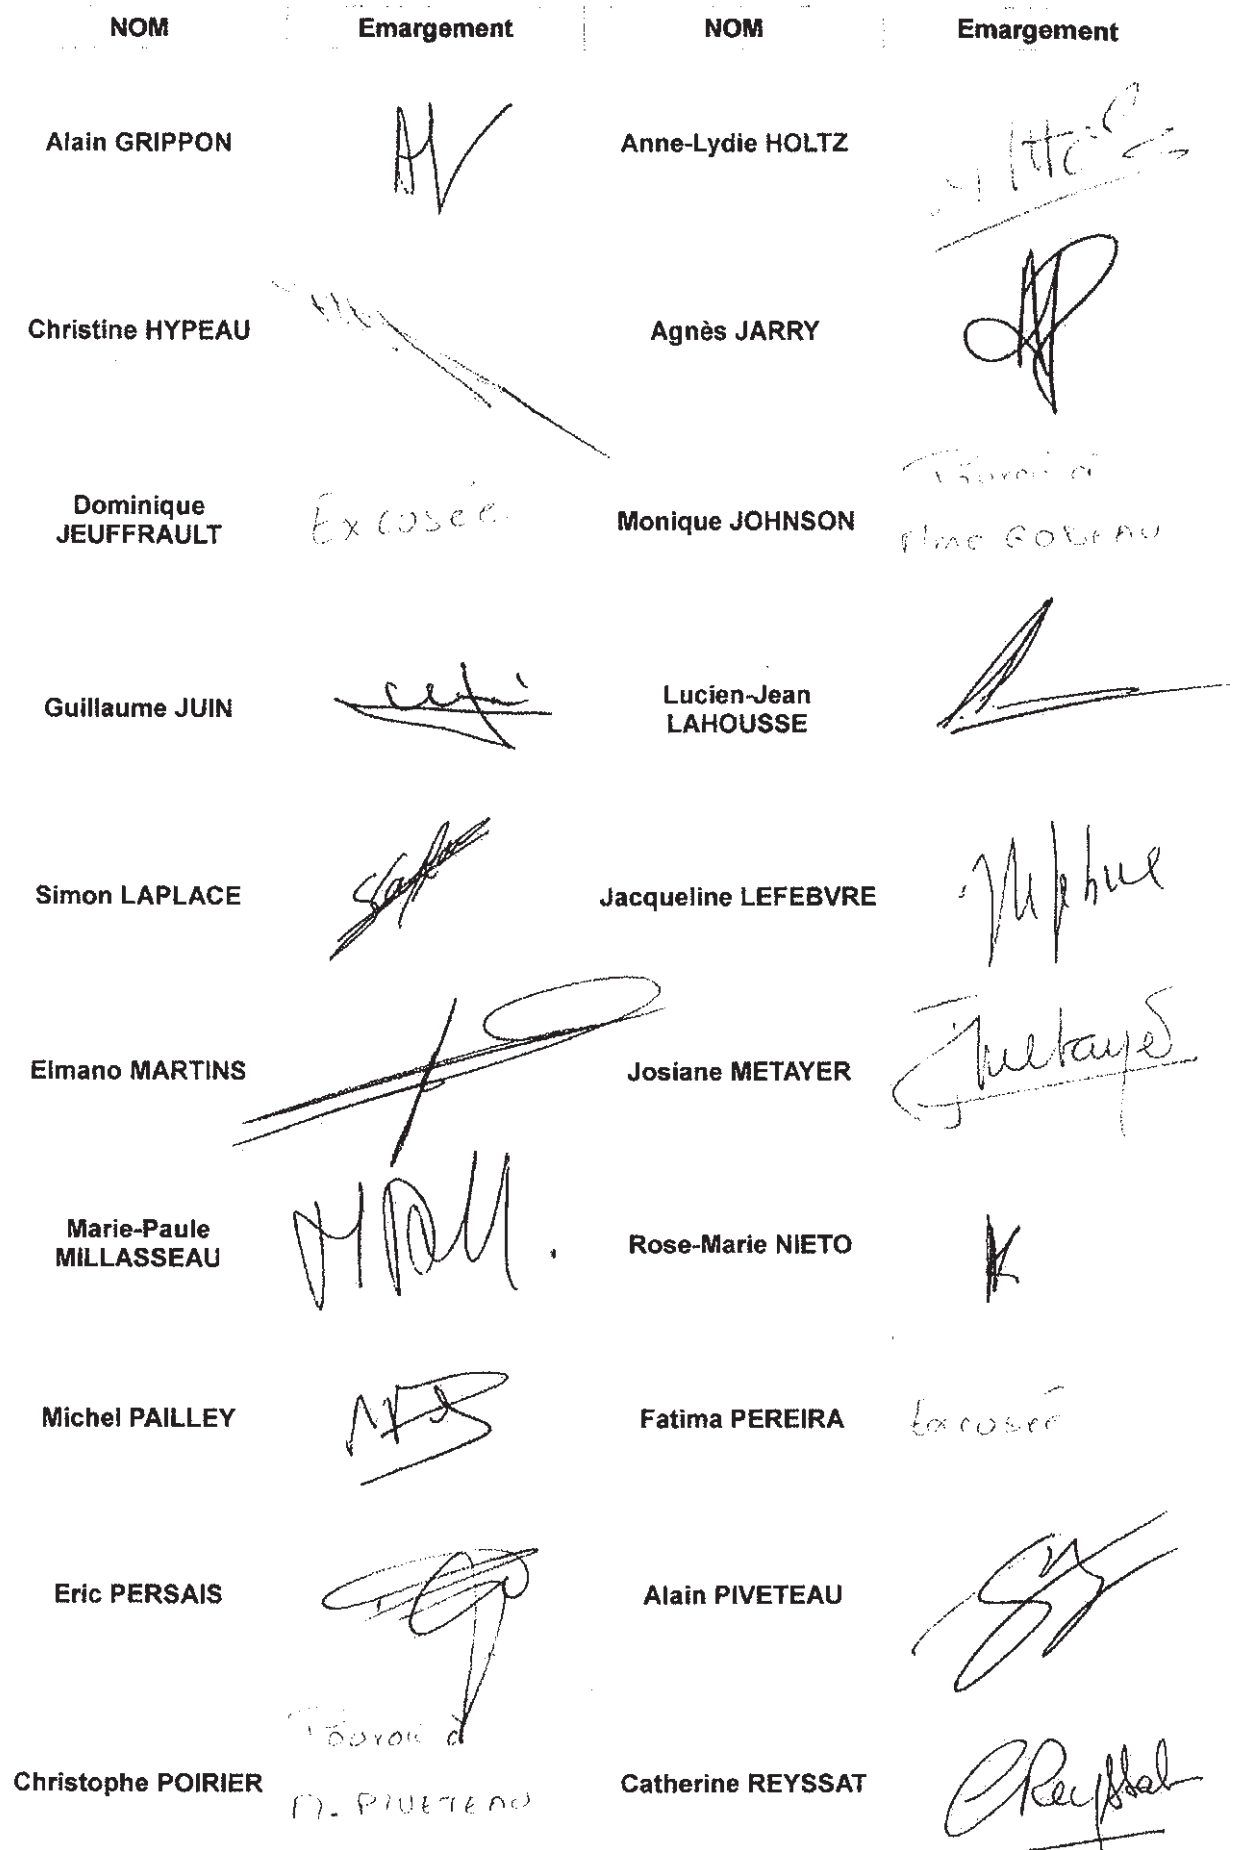 NOM Emargement NOM Emargement
Alain GRIPPON Anne-Lydie HOLTZ
Christine HYPEAU Agnès JARRY
Dominique
JEUFFRAULT
Excusée
Monique JOHNSON
Pouvoir à
Mme GOBEAU
Guillaume JUIN
Lucien-Jean
LAHOUSSE
Simon LAPLACE Jacqueline LEFEBVRE
Elmano MARTINS Josiane METAYER
JMetayer
Marie-Paule
MILLASSEAU
Rose-Marie NIETO
Michel PAILLEY Fatima PEREIRA Excusée
Eric PERSAIS Alain PIVETEAU
Christophe POIRIER
Pouvoir à
M. PIVETEAU
Catherine REYSSAT CReyssat